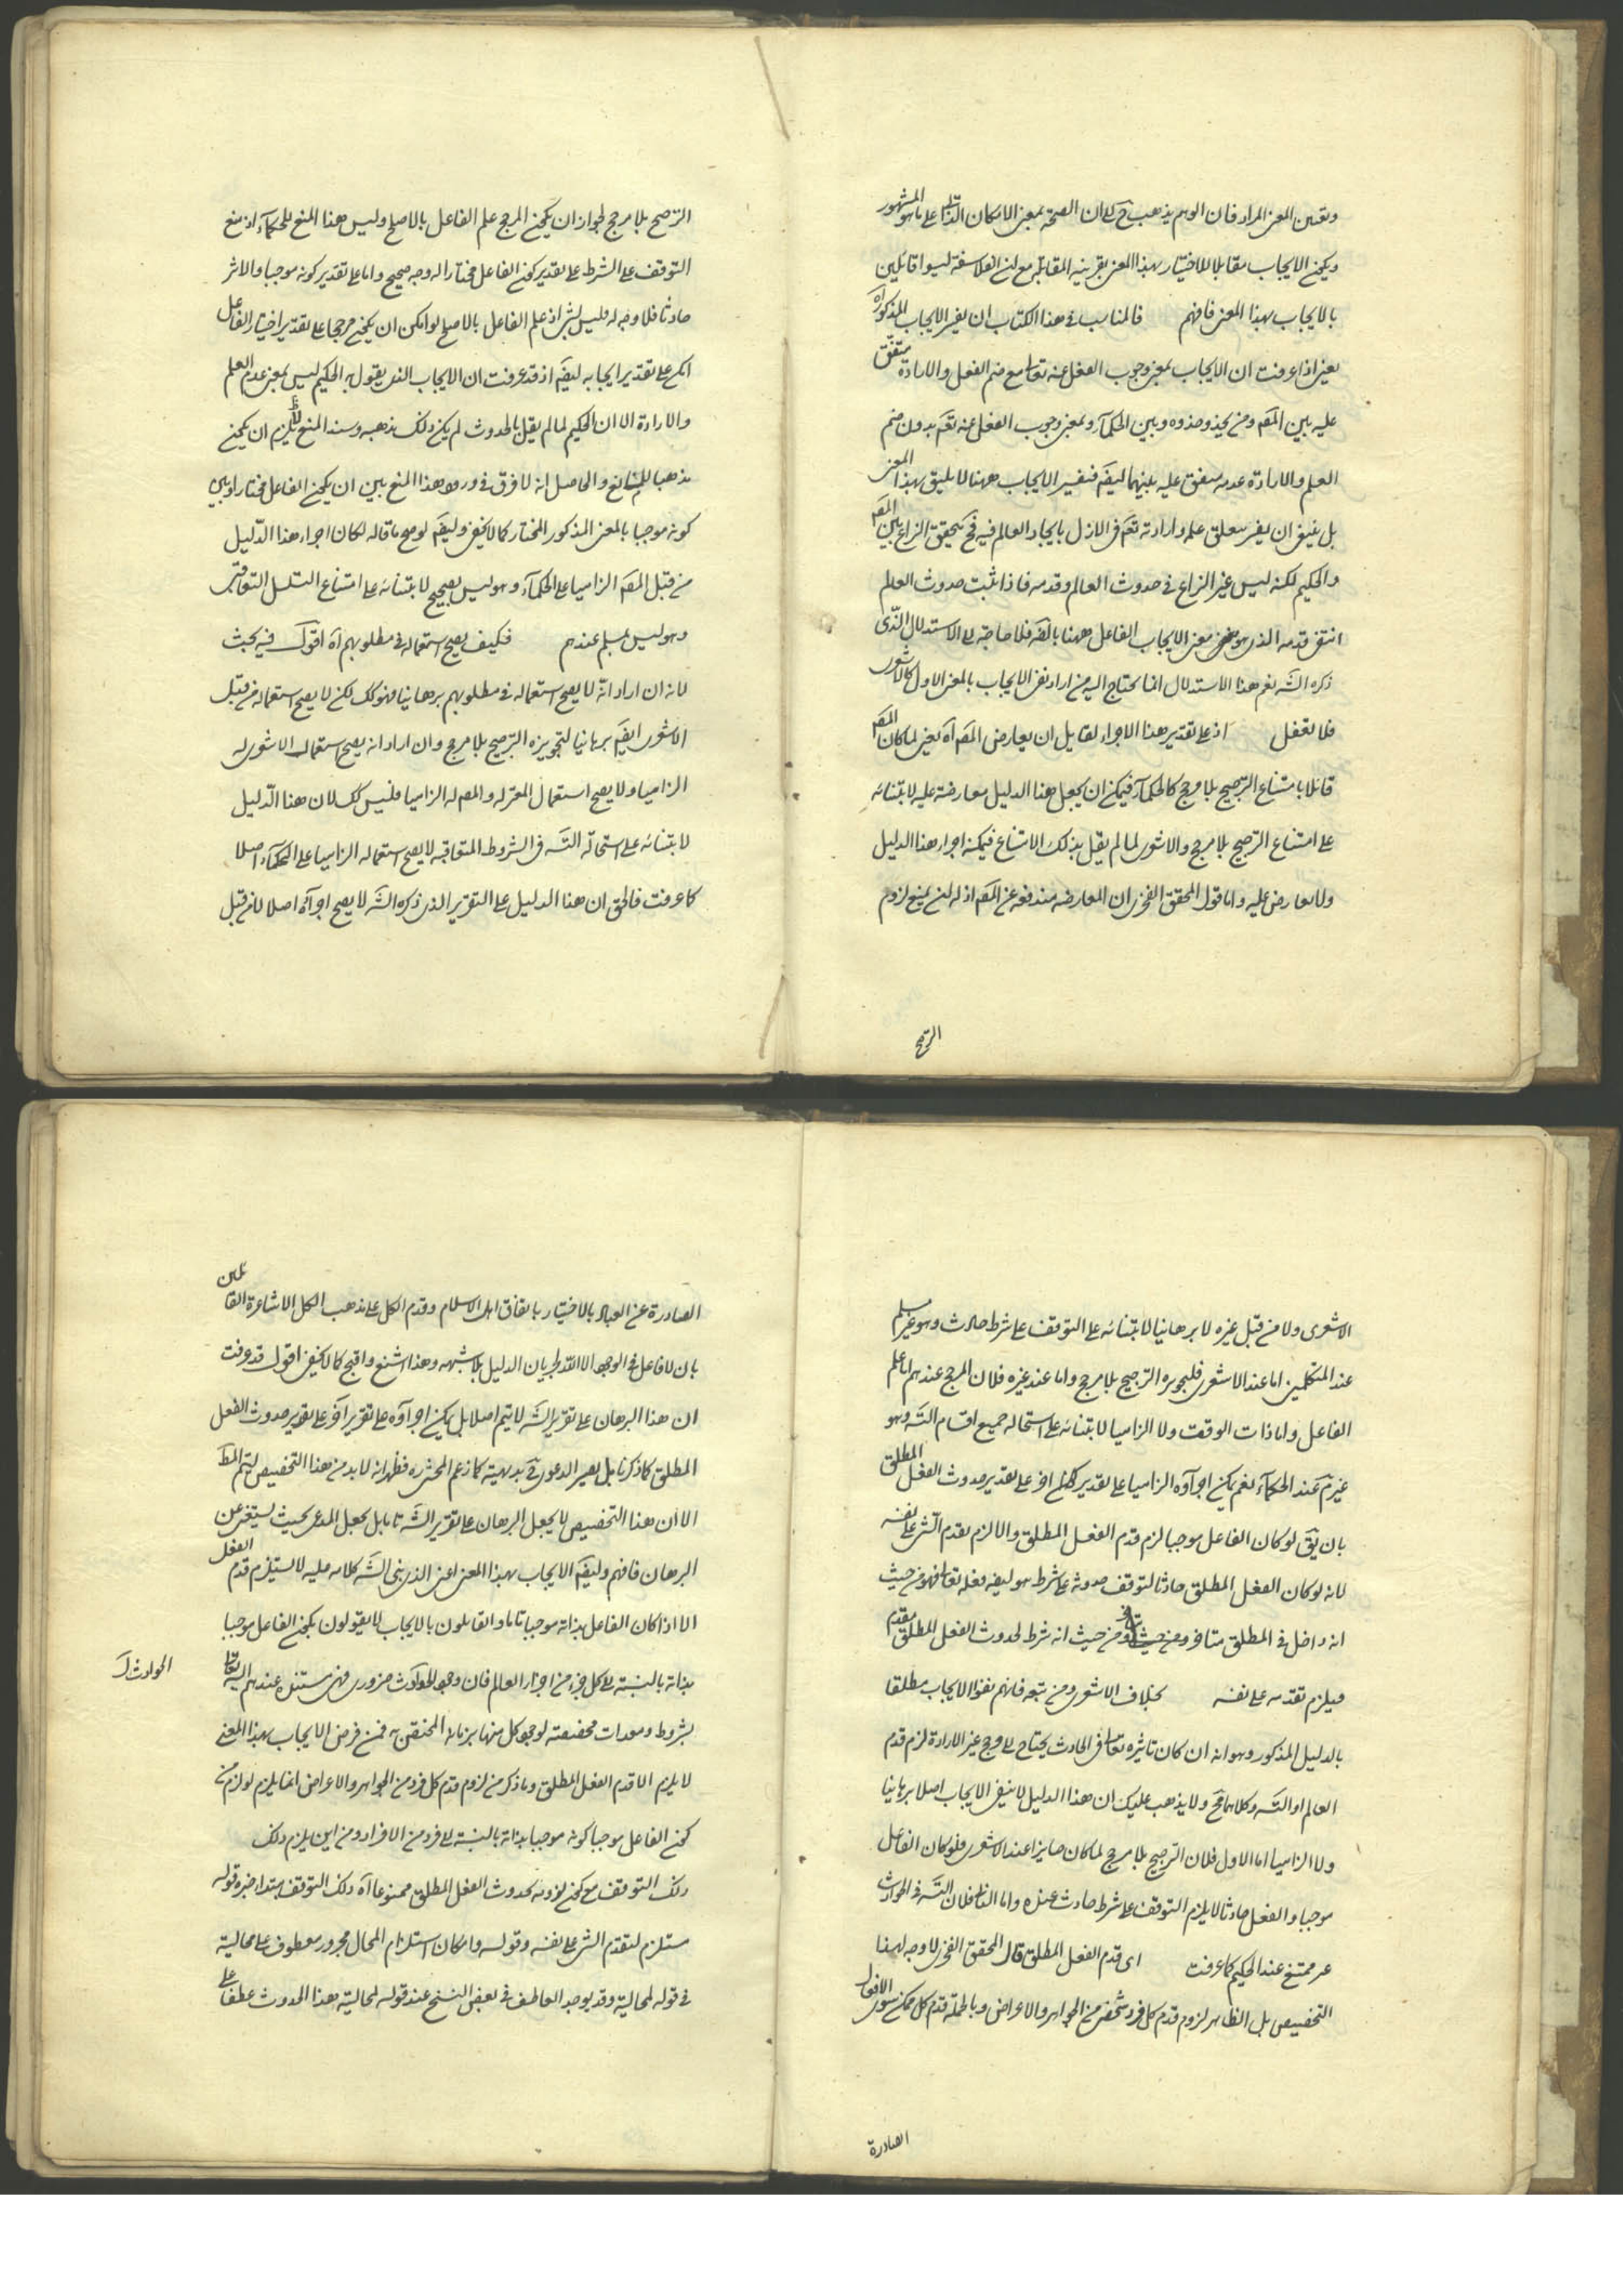 وتعين المعنى المراد فان الوهم يذهب ح الى ان الصحة بمعنى الامكان الذاتى على ما هو المشهور
ويكون الايجاب مقابلا للاختيار بهذا المعنى بقرينه المقابلة مع ان الفلاسفة ليسوا قائلين
بالايجاب بهذا المعنى فافهم فالمناسب فى هذا الكتاب ان يفسر الايجاب المذكور اه
يعنى اذا عرفت ان الايجاب بمعنى وجوب الفعل عنه تعالى مع ضم الفعل والارادة متفق
عليه بين المصَ ومن يحذو حذوه وبين الحكمآء وبمعنى وجوب الفعل عنه تعَ بدون ضم
العلم والارادة عدمه متفق عليه بينهما ايضَ فتفسير الايجاب ههنا لا يليق بهذا المعنى
بل ينبغى ان يفسر بتعلق علمه وارادته تعَ فى الازل بايجاد العالم فيه فح يتحقق النزاع بين المصَ
والحكيم لكنه ليس غير النزاع فى حدوث العالم وقدمه فاذا ثبت حدوث العالم
انتفى قدمه الذى هو معنى الايجاب الفاعل ههنا بالضَ فلا حاجة الى الاستدلال الذى
ذكره الشَ نعم هذا الاستدلال انما يحتاج اليه من اراد نفى الايجاب بالمعنى الاول كالاشعرى
فلا تغفل اذ على تقدير هذا الاجراء لقايل ان يعارض المصَ آه يعنى لما كان المصَ
قائلا بامتناع الترجيح بلا مرجح كالحكمآء فيمكن ان يجعل هذا الدليل معارضة عليه لابتنائه
على امتناع الترجيح بلا مرجح والاشعرى لما لم يقل بذلك الامتناع فيمكنه اجراء هذا الدليل
ولا يعارض عليه واما قول المحقق الفخرى ان المعارضه مندفعه عن المصَ اذ له ان يمنع لزوم
الترجيح
الترجيح بلا مرجح لجواز ان يكون المرجح علم الفاعل بالاصلح وليس هذا المنع للحكمآء اذ منع
التوقف على الشرط على تقدير كون الفاعل مختارا له وجه صحيح واما على تقدير كونه موجبا والاثر
حادثا فلا وجه له فليس بشئ اذ علم الفاعل بالاصلح لو امكن ان يكون مرجحا على تقدير اختيار الفاعل
امكن على تقدير ايجابه ايضَ اذ قد عرفت ان الايجاب الذى يقول به الحكيم ليس بمعنى عدم العلم
والارادة الا ان الحكيم لما لم يقل بالحدوث لم يكن ذلك مذهبه وسند المنع لا يلزم ان يكون
مذهبا للمانع والحاصل انه لا فرق فى ورود هذا المنع بين ان يكون الفاعل مختارا وبين
كونه موجبا بالمعنى المذكور المختار كما لا يخفى وايضَ لو صح ما قاله لكان اجراء هذا الدليل
من قبل المصَ الزاميا على الحكمآء وهو ليس بصحيح لابتنائه على امتناع التسلسل التعاقبى
وهو ليس بمسلم عندهم فكيف يصح استعماله فى مطلوبهم آه اقول فيه بحث
لانه ان اراد انه لا يصح استعماله فى مطلوبهم برهانيا فهو كك لكن لا يصح استعماله من قبل
الاشعرى ايضَ برهانيا لتجويزه الترجيح بلا مرجح وان اراد انه يصح استعمال الاشعرى له
الزاميا ولا يصح استعمال المعتزله والمصَ له الزاميا فليس كك لان هذا الدليل
لابتنائه على استحالة التسَ فى الشروط المتعاقبه لا يصح استعماله الزاميا على الحكمآء اصلا
كما عرفت فالحق ان هذا الدليل على التقرير الذى ذكره الشَ لا يصح اجرآئه اصلا لا من قبل
الاشعرى ولا من قبل غيره لا برهانيا لابتنائه على التوقف على شرط حادث وهو غير مسلم
عند المتكلمين اما عند الاشعرى فلتجويزه الترجيح بلا مرجح واما عند غيره فلان المرجح عندهم اما علم
الفاعل واما ذات الوقت ولا الزاميا لابتنائه على استحاله جميع اقسام التسَ وهو
غير تم عند الحكمآء نعم يمكن اجرآؤه الزاميا على تقدير اخر على تقدير حدوث الفعل المطلق
بان يقَ لو كان الفاعل موجبا لزم قدم الفعل المطلق والا لزم تقدم الشئ على نفسه
لانه لو كان الفعل المطلق حادثا لتوقف حدوثه على شرط هو ايضَ فعله تعالى فهو من حيث
انه داخل فى المطلق متاخر ومن حيث انه شرط لحدوث الفعل المطلق مقدم
فيلزم تقدمه على نفسه بخلاف الاشعرى ومن تبعه فانهم نفوا الايجاب مطلقا
بالدليل المذكور وهو انه ان كان تاثيره تعالى فى الحادث يحتاج الى مرجح غير الارادة لزم قدم
العالم او التسَ وكلاهما مح ولا يذهب عليك ان هذا الدليل لا ينفى الايجاب اصلا برهانيا
ولا الزاميا اما الاول فلان الترجيح بلا مرجح لما كان جايزا عند الاشعرى فلو كان الفاعل
موجبا والفعل حادثا لا يلزم التوقف على شرط حادث عنده واما الثانى فلان التسَ فى الحوادث
غير ممتنع عند الحكيم كما عرفت اى قدم الفعل المطلق قال المحقق الفخرى لا وجه لهذا
التخصيص بل الظاهر لزوم قدم كل فرد شخصى من الجواهر والاعراض وبالجملة قدم كل ممكن سوى الافعال
الصادرة
الصادرة عن العباد بالاختيار باتفاق اهل الاسلام وقدم الكل على مذهب الكل الاشاعرة القائلين
بان لا فاعل فى الوجود الا الله لجريان الدليل بلا شبهه وهذا اشنع واقبح كما لا يخفى اقول قد عرفت
ان هذا البرهان على تقرير الشَ لا يتم اصلا بل يمكن اجرآؤه على تقرير آخر على تقدير حدوث الفعل
المطلق كما ذكرنا بل يصير الدعوى ح بديهية كما زعم المحشى ره فظهر انه لا بد من هذا التخصيص ليتم المطَ
الا ان هذا التخصيص لا يجعل البرهان على تقرير الشَ تاما بل يجعل المدعى بحيث يستغنى عن
البرهان فافهم وايضَ الايجاب بهذا المعنى اعنى الذى بنى الشَ كلامه عليه لا يستلزم قدم الفعل
الا اذا كان الفاعل بذاته موجبا تاما والقايلون بالايجاب لا يقولون بكون الفاعل موجبا
بذاته بالنسبة الى كل جزء من اجزاء العالم فان وجود الحوادث ضرورى فهى مستنده عندهم اليه تعالى
الحوادث
بشروط ومعدات مخصصه لوجود كل منها بزمانه المختص به فمن فرض الايجاب بهذا المعنى
لا يلزم الا قدم الفعل المطلق وما ذكر من لزوم قدم كل فرد من الجواهر والاعراض انما يلزم لو لزم من
كون الفاعل موجبا كونه موجبا بذاته بالنسبة الى فرد من الافراد ومن اين يلزم ذلك
ذلك التوقف مع كون لزومه لحدوث الفعل المطلق ممنوعا آه ذلك التوقف مبتدا خبره قوله
مستلزم لتقدم الشئ على نفسه وقوله وامكان استلزام المحال مجرور معطوف على محالية
فى قوله لمحالية وقد يوجد العاطف فى بعض النسخ عند قوله لمحالية هذا الحدوث عطفا على